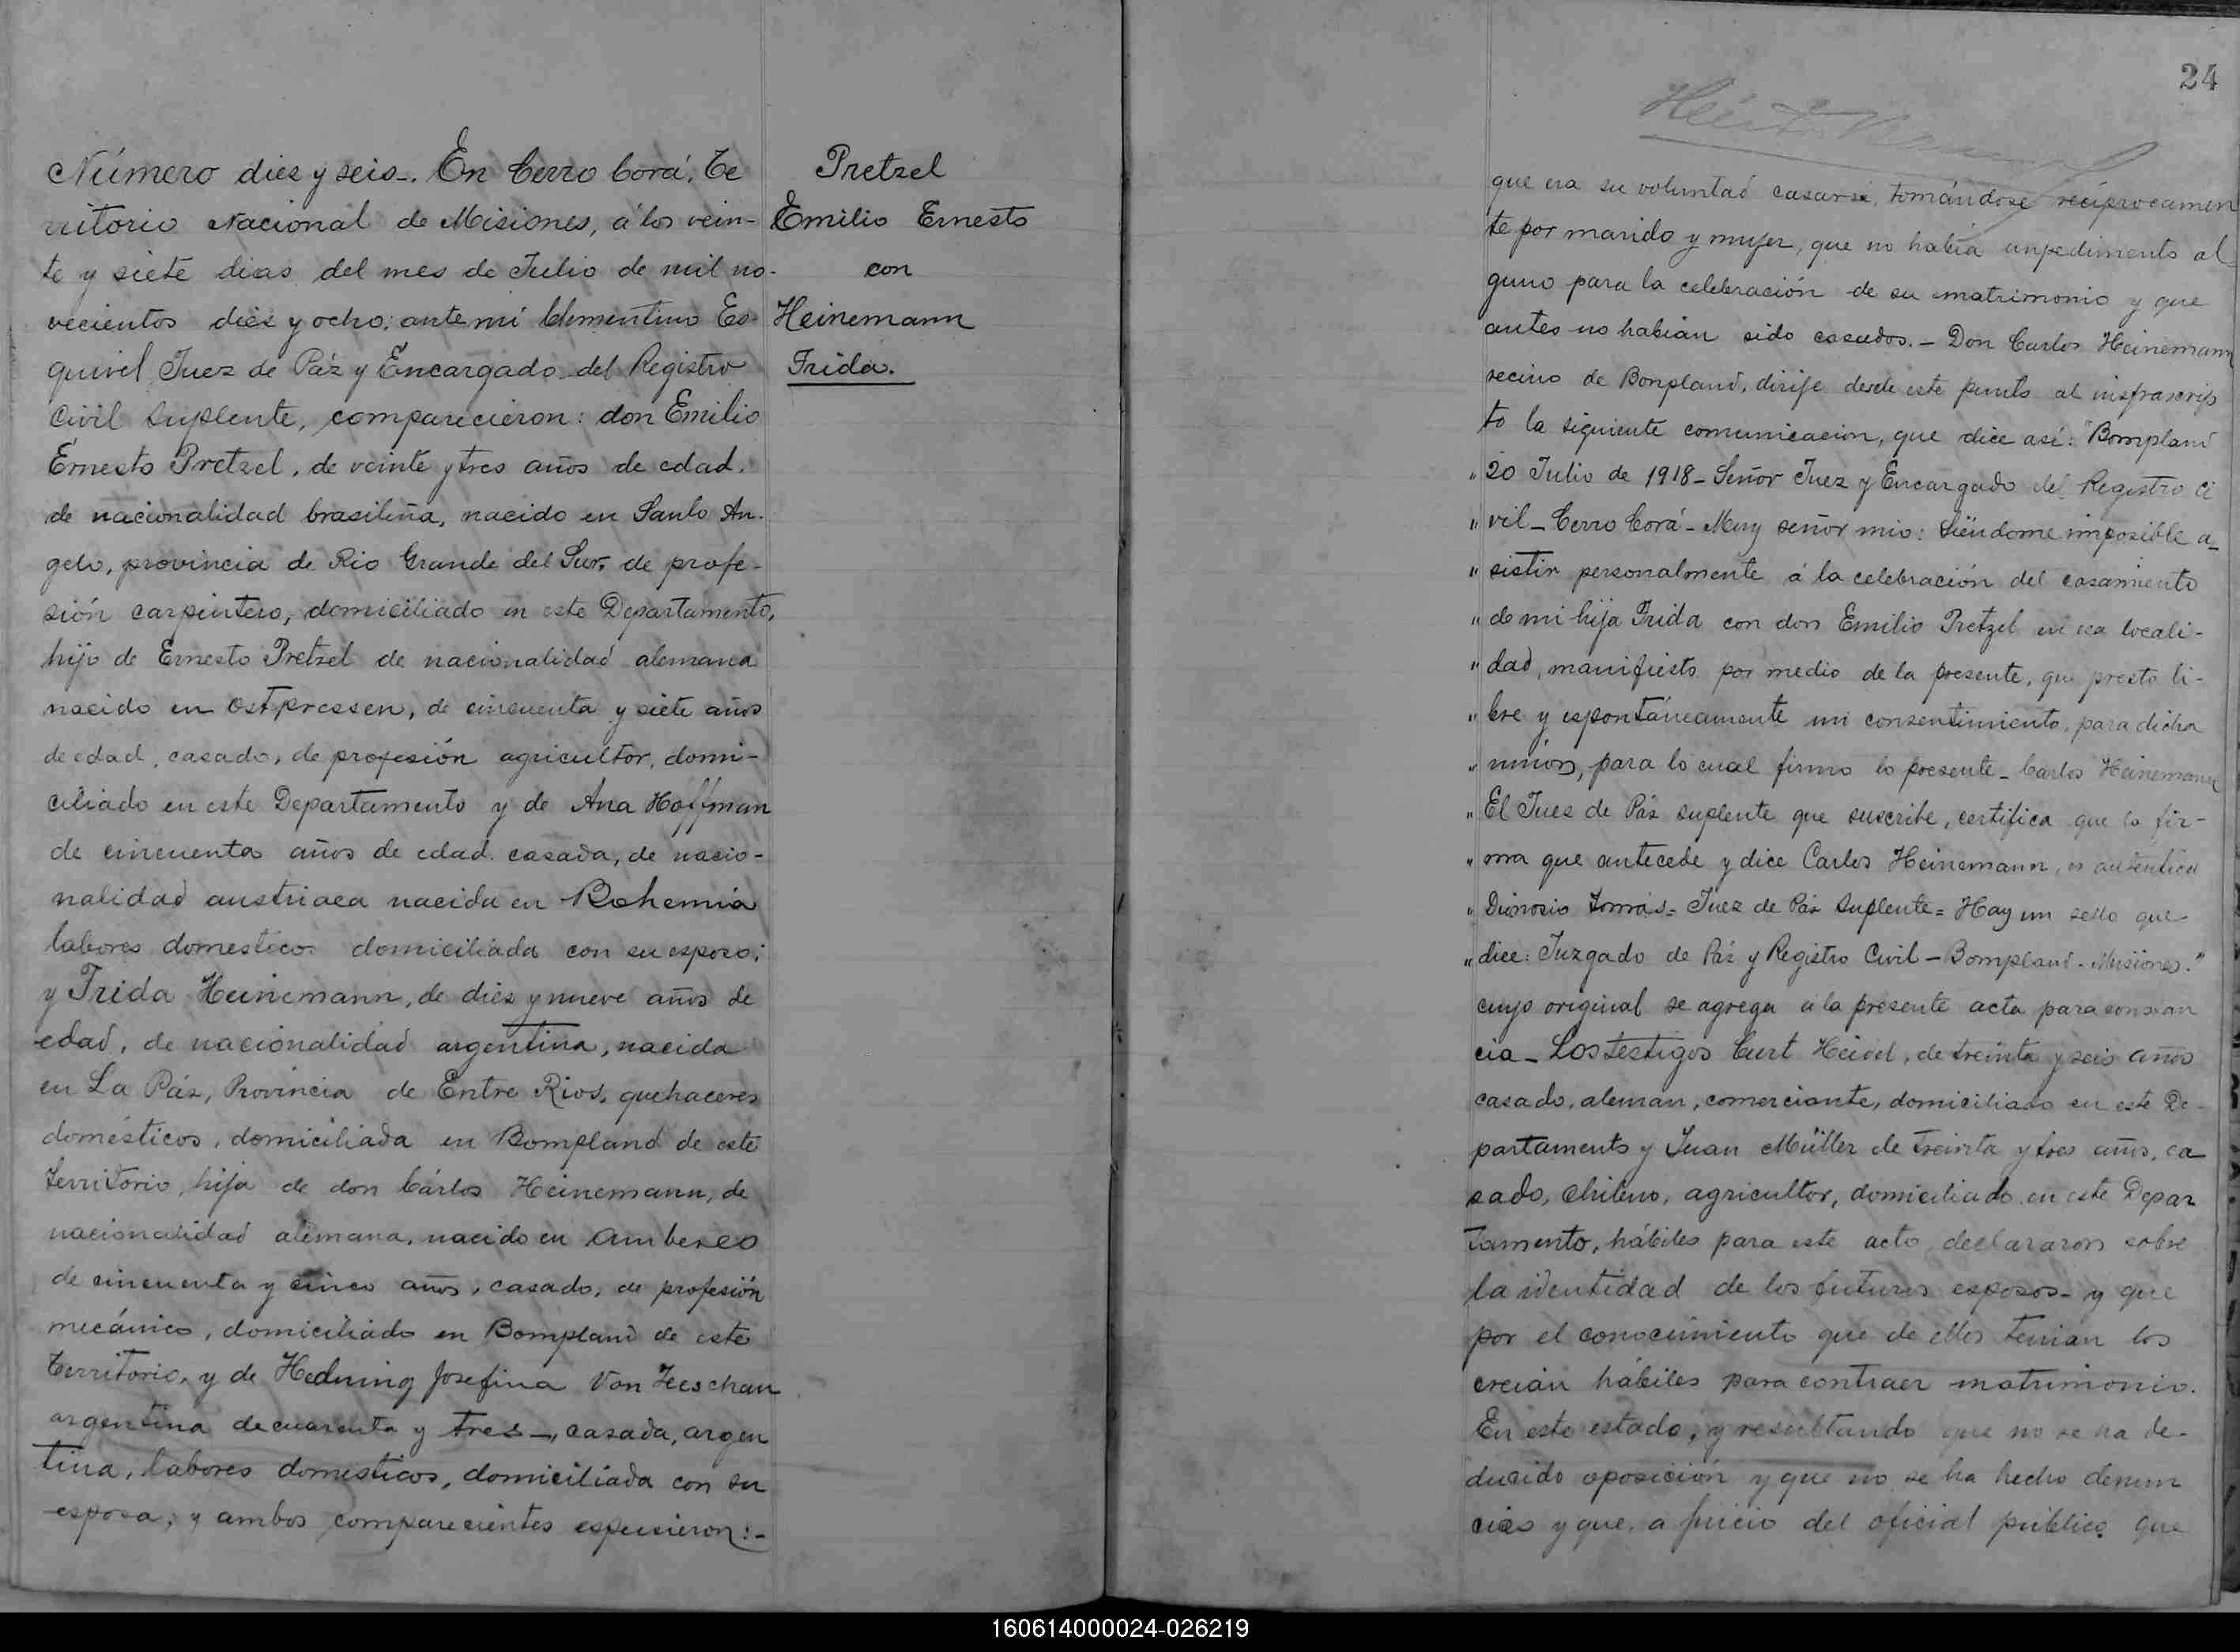 Número diez y seis-. En Cerro Corá, Te
rritorio Nacional de Misiones, á los vein-
te y siete dias del mes de Julio de mil no-
vecientos diez y ocho; ante mí Clementino Es-
quivel Juez de Páz y Encargado del Registro
Civil Suplente, comparecieron: don Emilio
Ernesto Pretzel, de veinte y tres años de edad,
de nacionalidad brasileña, nacido en Santo An-
gelo, provincia de Rio Grande del Sur, de profe-
sión carpintero, domiciliado en este Departamento,
hijo de Ernesto Pretzel de nacionalidad alemana
nacido en Ostpressen, de cincuenta y siete años
de edad, casado, de profesión agricultor, domi-
ciliado en este Departamento y de Ana Hoffman
de cincuenta años de edad, casada, de nacio-
nalidad austriaca nacida en Bohemia
labores domesticos domiciliada con su esposo;
y Frida Heinemann, de diez y nueve años de
edad, de nacionalidad argentina, nacida
en La Páz, Provincia de Entre Rios, quehaceres
domésticos, domiciliada en Bompland de este
territorio, hija de don Cárlos Heinemann, de
nacionalidad alemana, nacido en Amberes
de cincuenta y cinco años, casado, de profesión
mecánico, domiciliado en Bompland de este
Territorio, y de Hedning Josefina Von Zeeschau
argentina de cuarenta y tres-, casada, argen
tina, labores domesticos, domiciliada con su
esposo; y ambos comparecientes espusieron:-
Pretzel
Emilio Ernesto
con
Heinemann
Frida.
24
que era su voluntad casarse, tomándose recíprocamen
te por marido y mujer, que no había impedimento al
guno para la celebración de su matrimonio y que
antes no habían sido casados.- Don Carlos Heinemann
vecino de Bonpland, dirije desde este punto al insfrascrip
to la siguiente comunicacion, que dice así: "Bompland
" 20 Julio de 1918- Señor Juez y Encargado del Registro Ci
" vil- Cerro Corá- Muy señor mio: Siéndome imposible a_
" sistir personalmente á la celebración del casamiento
" de mi hija Frida con don Emilio Pretzel en esa locali-
" dad, manifiesto por medio de la presente, que presto li-
" bre y espontáneamente mi consentimiento, para dicha
" unión, para lo cual firmo la presente- Carlos Heinemann
" El Juez de Páz suplente que suscribe, certifica que la fir-
" ma que antecede y dice Carlos Heinemann, es auténtica
" Dionosio Tomás= Juez de Páz Suplente= Hay un sello que
" dice: Juzgado de Páz y Registro Civil- Bompland- Misiones."
cuyo original se agrega á la presente acta para constan
cia- Los testigos Curt Heidel, de treinta y seis años
casado, aleman, comerciante, domiciliado en este De-
partamento y Juan Müller de treinta y tres años, ca
sado, chileno, agricultor, domiciliado en este Depar
tamento, hábiles para este acto, declararon sobre
la identidad de los futuros esposos- y que
por el conocimiento que de ellos tenian los
creián hábiles para contraer matrimonio.
En este estado, y resultando que no se ha de-
ducido oposición y que no se ha hecho denun
cias y que, a juicio del oficial público que
160614000024-026219